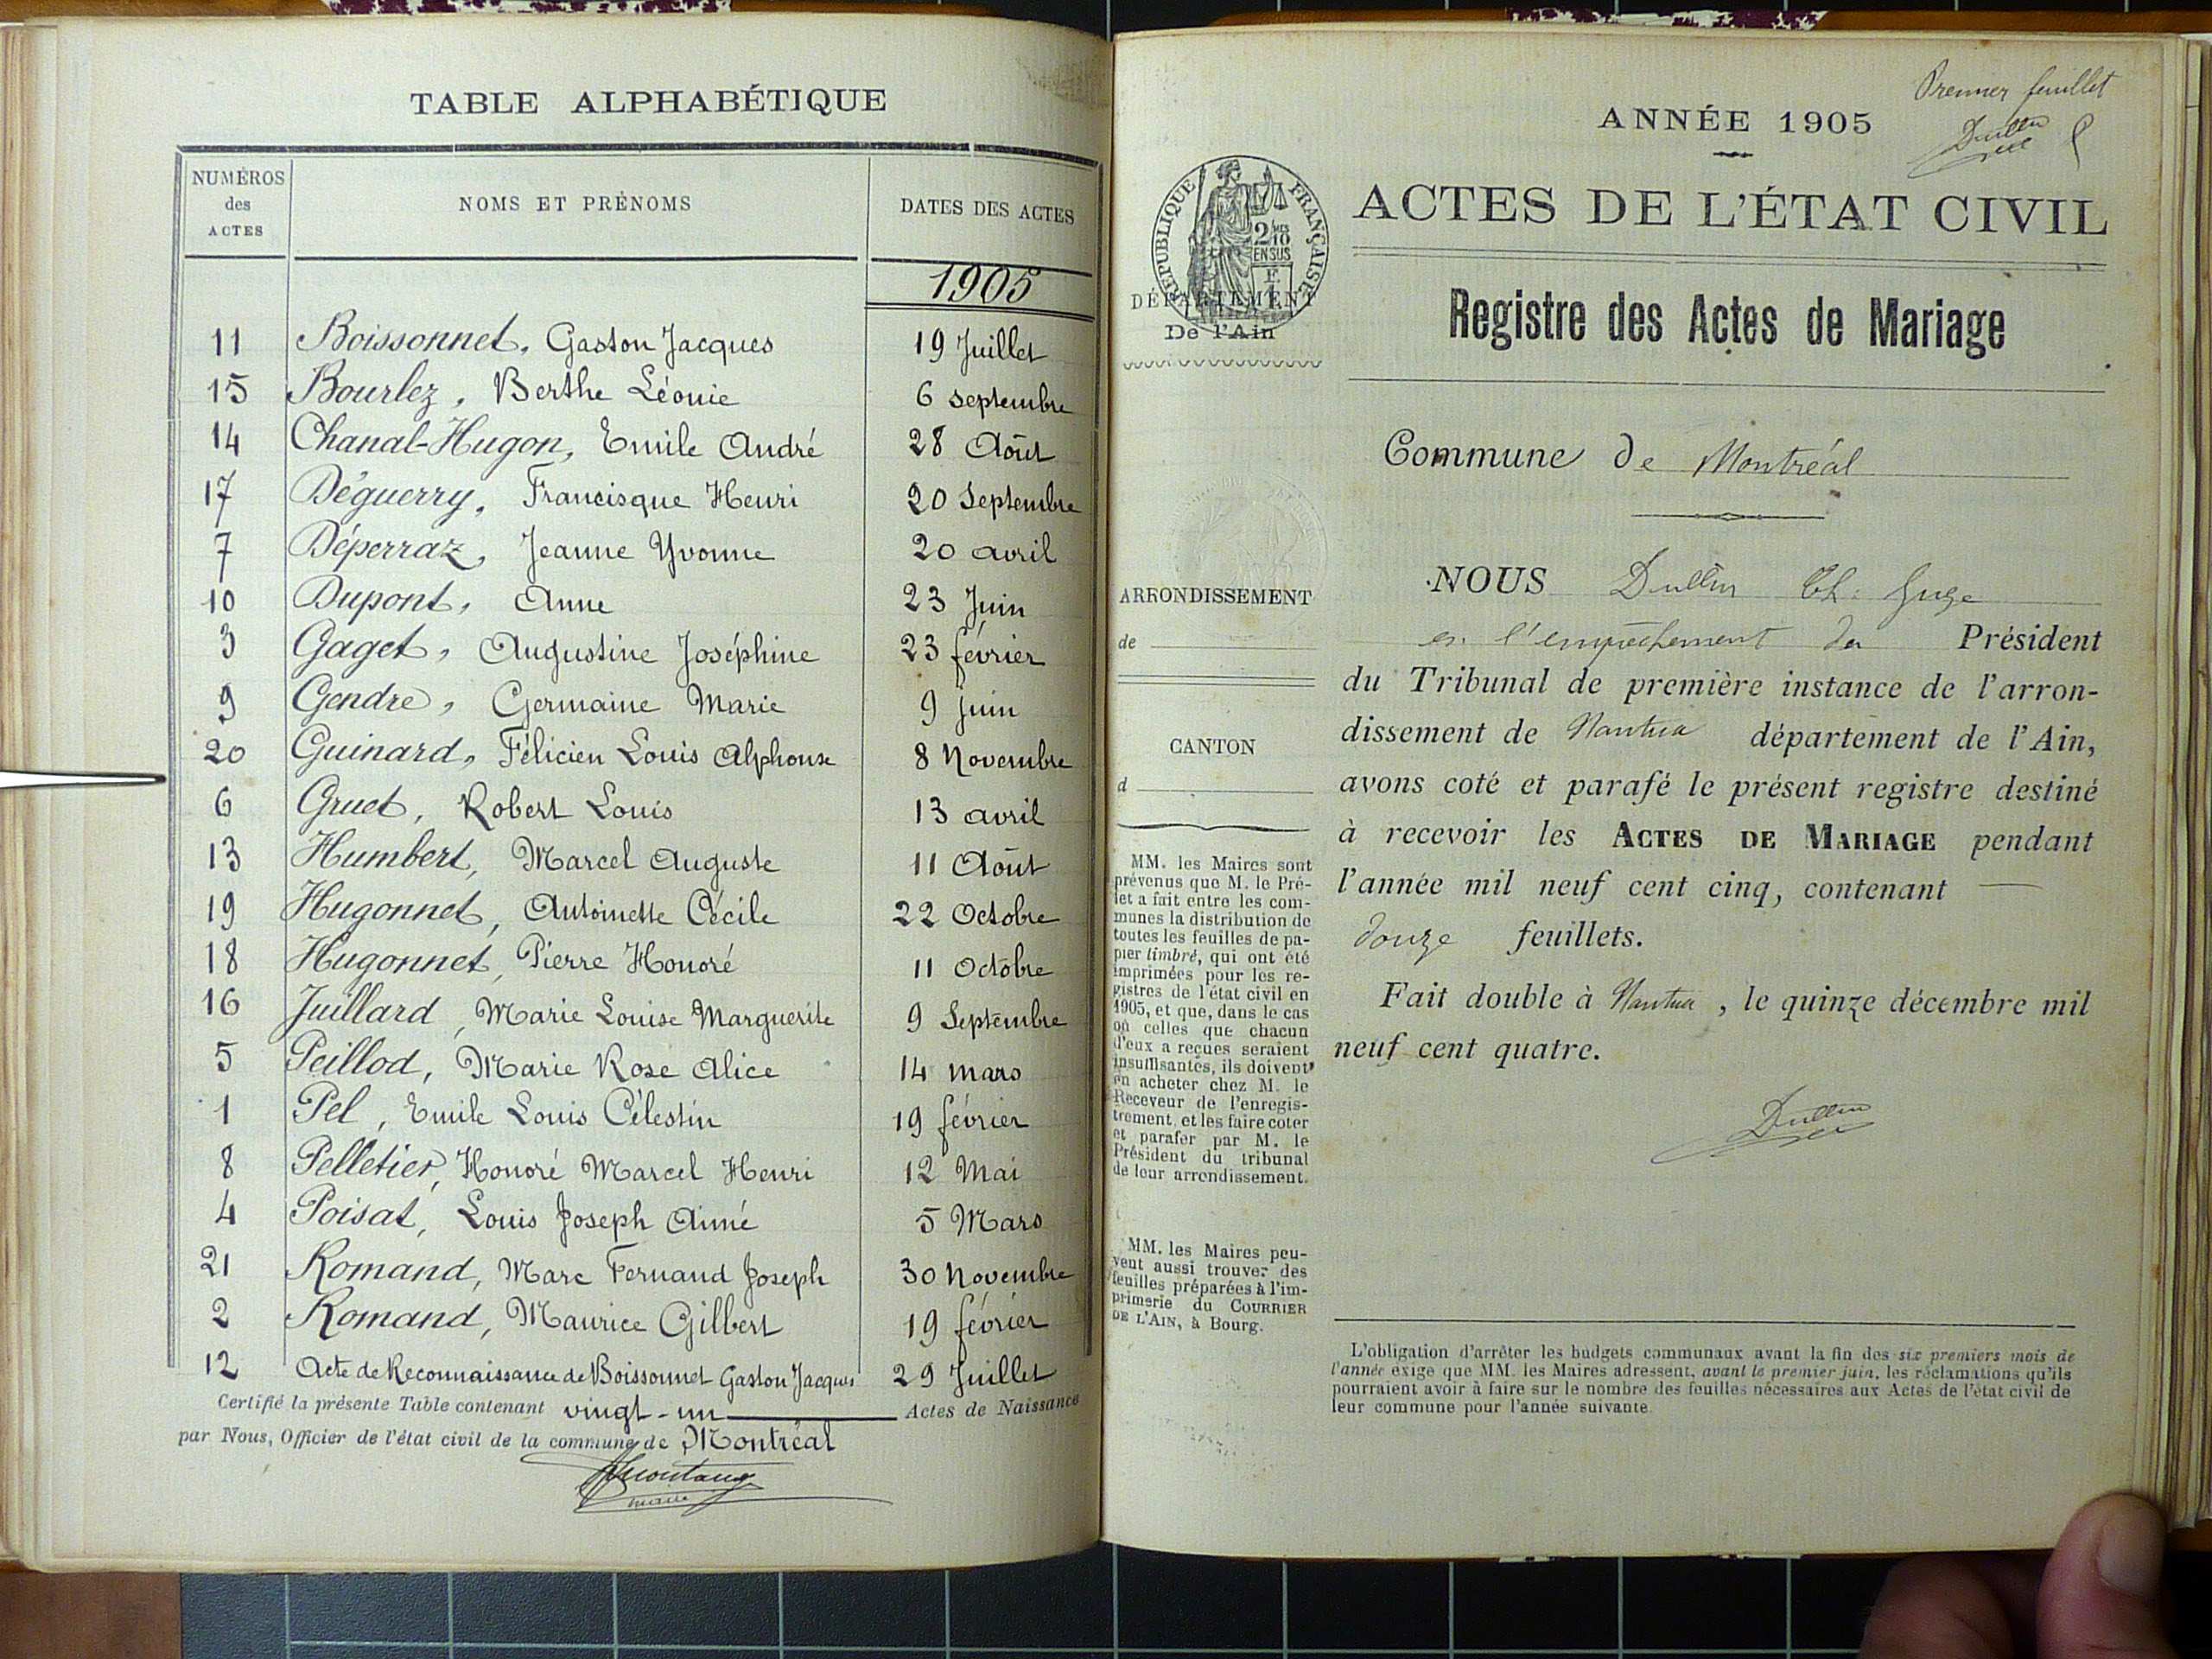 TABLE ALPHABÉTIQUE
NUMÉROS des ACTES NOMS ET PRÉNOMS DATES DES ACTES
1905
11 Boissonnet, Gaston Jacques 19 Juillet
15 Bourlez, Berthe Léonie 6 septembre
14 Chanal-Hugon, Emile André 28 Août
17 Déguerry, Francisque Henri 20 Septembre
7 Déperraz, Jeanne Yvonne 20 avril
10 Dupont, Anne 23 Juin
3 Gaget, Augustine Joséphine 23 février
9 Gendre, Germaine Marie 9 juin
20 Guinard, Félicien Louis Alphonse 8 Novembre
6 Gruet, Robert Louis 13 avril
13 Humbert, Marcel Auguste 11 Août
19 Hugonnet, Antoinette Cécile 22 Octobre
18 Hugonnet, Pierre Honoré 11 Octobre
16 Juillard, Marie Louise Marguerite 9 Septembre
5 Peillod, Marie Rose Alice 14 mars
1 Pel, Emile Louis Célestin 19 février
8 Pelletier, Honoré Marcel Henri 12 Mai
4 Poisat, Louis Joseph Aimé 5 Mars
21 Romand, Marc Fernand Joseph 30 Novembre
2 Romand, Maurice Gilbert 19 février
12 Acte de Reconnaissance de Boissonnet Gaston Jacques 29 Juillet
Certifié la présente Table contenant vingt-un Actes de Naissance
par Nous, Officier de l'état civil de la commune de Montréal
maire
Premier feuillet
Dullin
ANNÉE 1905
ACTES DE L'ÉTAT CIVIL
RÉPUBLIQUE FRANÇAISE
2/10 EN SUS
DÉPARTEMENT
De l'Ain
Registre des Actes de Mariage
Commune de Montréal
ARRONDISSEMENT
de
CANTON
d
MM. les Maires sont
prévenus que M. le Pré-
fet a fait entre les com-
munes la distribution de
toutes les feuilles de pa-
pier timbré, qui ont été
imprimées pour les re-
gistres de l'état civil en
1905, et que, dans le cas
où celles que chacun
d'eux a reçues seraient
insuffisantes, ils doivent
en acheter chez M. le
Receveur de l'enregis-
trement, et les faire coter
et parafer par M. le
Président du tribunal
de leur arrondissement.
MM. les Maires peu-
vent aussi trouver des
feuilles préparées à l'im-
primerie du COURRIER
DE L'AIN, à Bourg.
NOUS Dullin Ch. Juge
en l'empêchement du Président
du Tribunal de première instance de l'arron-
dissement de Nantua département de l'Ain,
avons coté et parafé le présent registre destiné
à recevoir les ACTES DE MARIAGE pendant
l'année mil neuf cent cinq, contenant
douze feuillets.
Fait double à Nantua, le quinze décembre mil
neuf cent quatre.
Dullin
L'obligation d'arrêter les budgets communaux avant la fin des six premiers mois de
l'année exige que MM. les Maires adressent, avant le premier juin, les réclamations qu'ils
pourraient avoir à faire sur le nombre des feuilles nécessaires aux Actes de l'état civil de
leur commune pour l'année suivante.